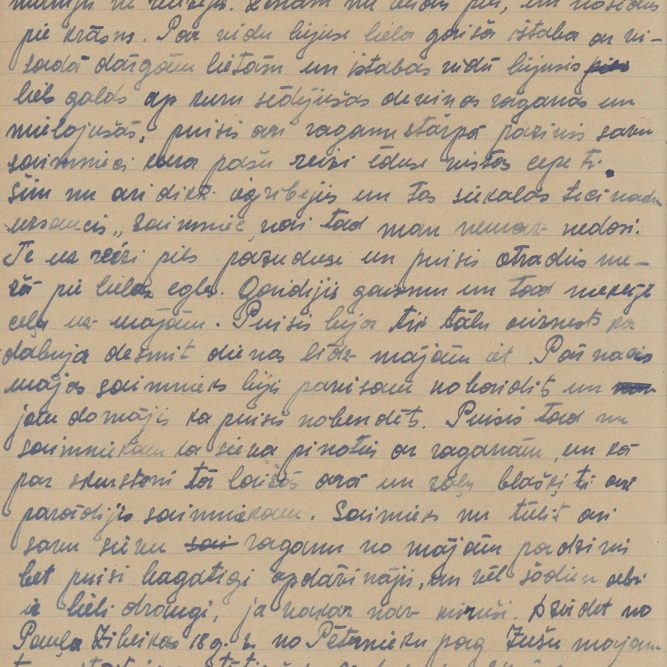 pie krāsns. Par vidu bijuse liela gaišā istaba ar vi-
sādā dārgām lietām un istabas vidū bijusis
liels galds ap kuru sēdējušas deviņas raganas un
mielojušās, puisis arī raganu starpā pazinis savu
saimnieci kura pašu reizi ēduse vistas cepeti.
Šim nu arī dikti iegribējies un tas siekalas tecinādams
uzsaucis „Saimniec, vai tad man nemaz nedosi.
Te uz reizi pils pazuduse un puisis atradies me-
žā pie lielas egles. Gaidijis gaismu un tad meklejis
ceļu uz mājām. Puisis bija tik tālu aiznests ka
dabuja desmit dienas līdz mājām iet. Pārnācis
mājās saimnieks bijis pavisam nobaidīts un
jau domājis ka puisis nobendēts. Puisis tad nu
saimniekam ka sieva pinoties ar raganām, un kā
par skursteni tā laižas arā un zāļu blašķīti arī
parādijis saimniekam. Saimieks nu tūlīt arī
savu sievu raganu no mājām padzinis
bet puisi bagatīgi apdāvinājis, un vēl šodien abi
ir lieli draugi, ja vakar nav miruši. Dzirdēt no
Pēternieku pag. Zušu mājām